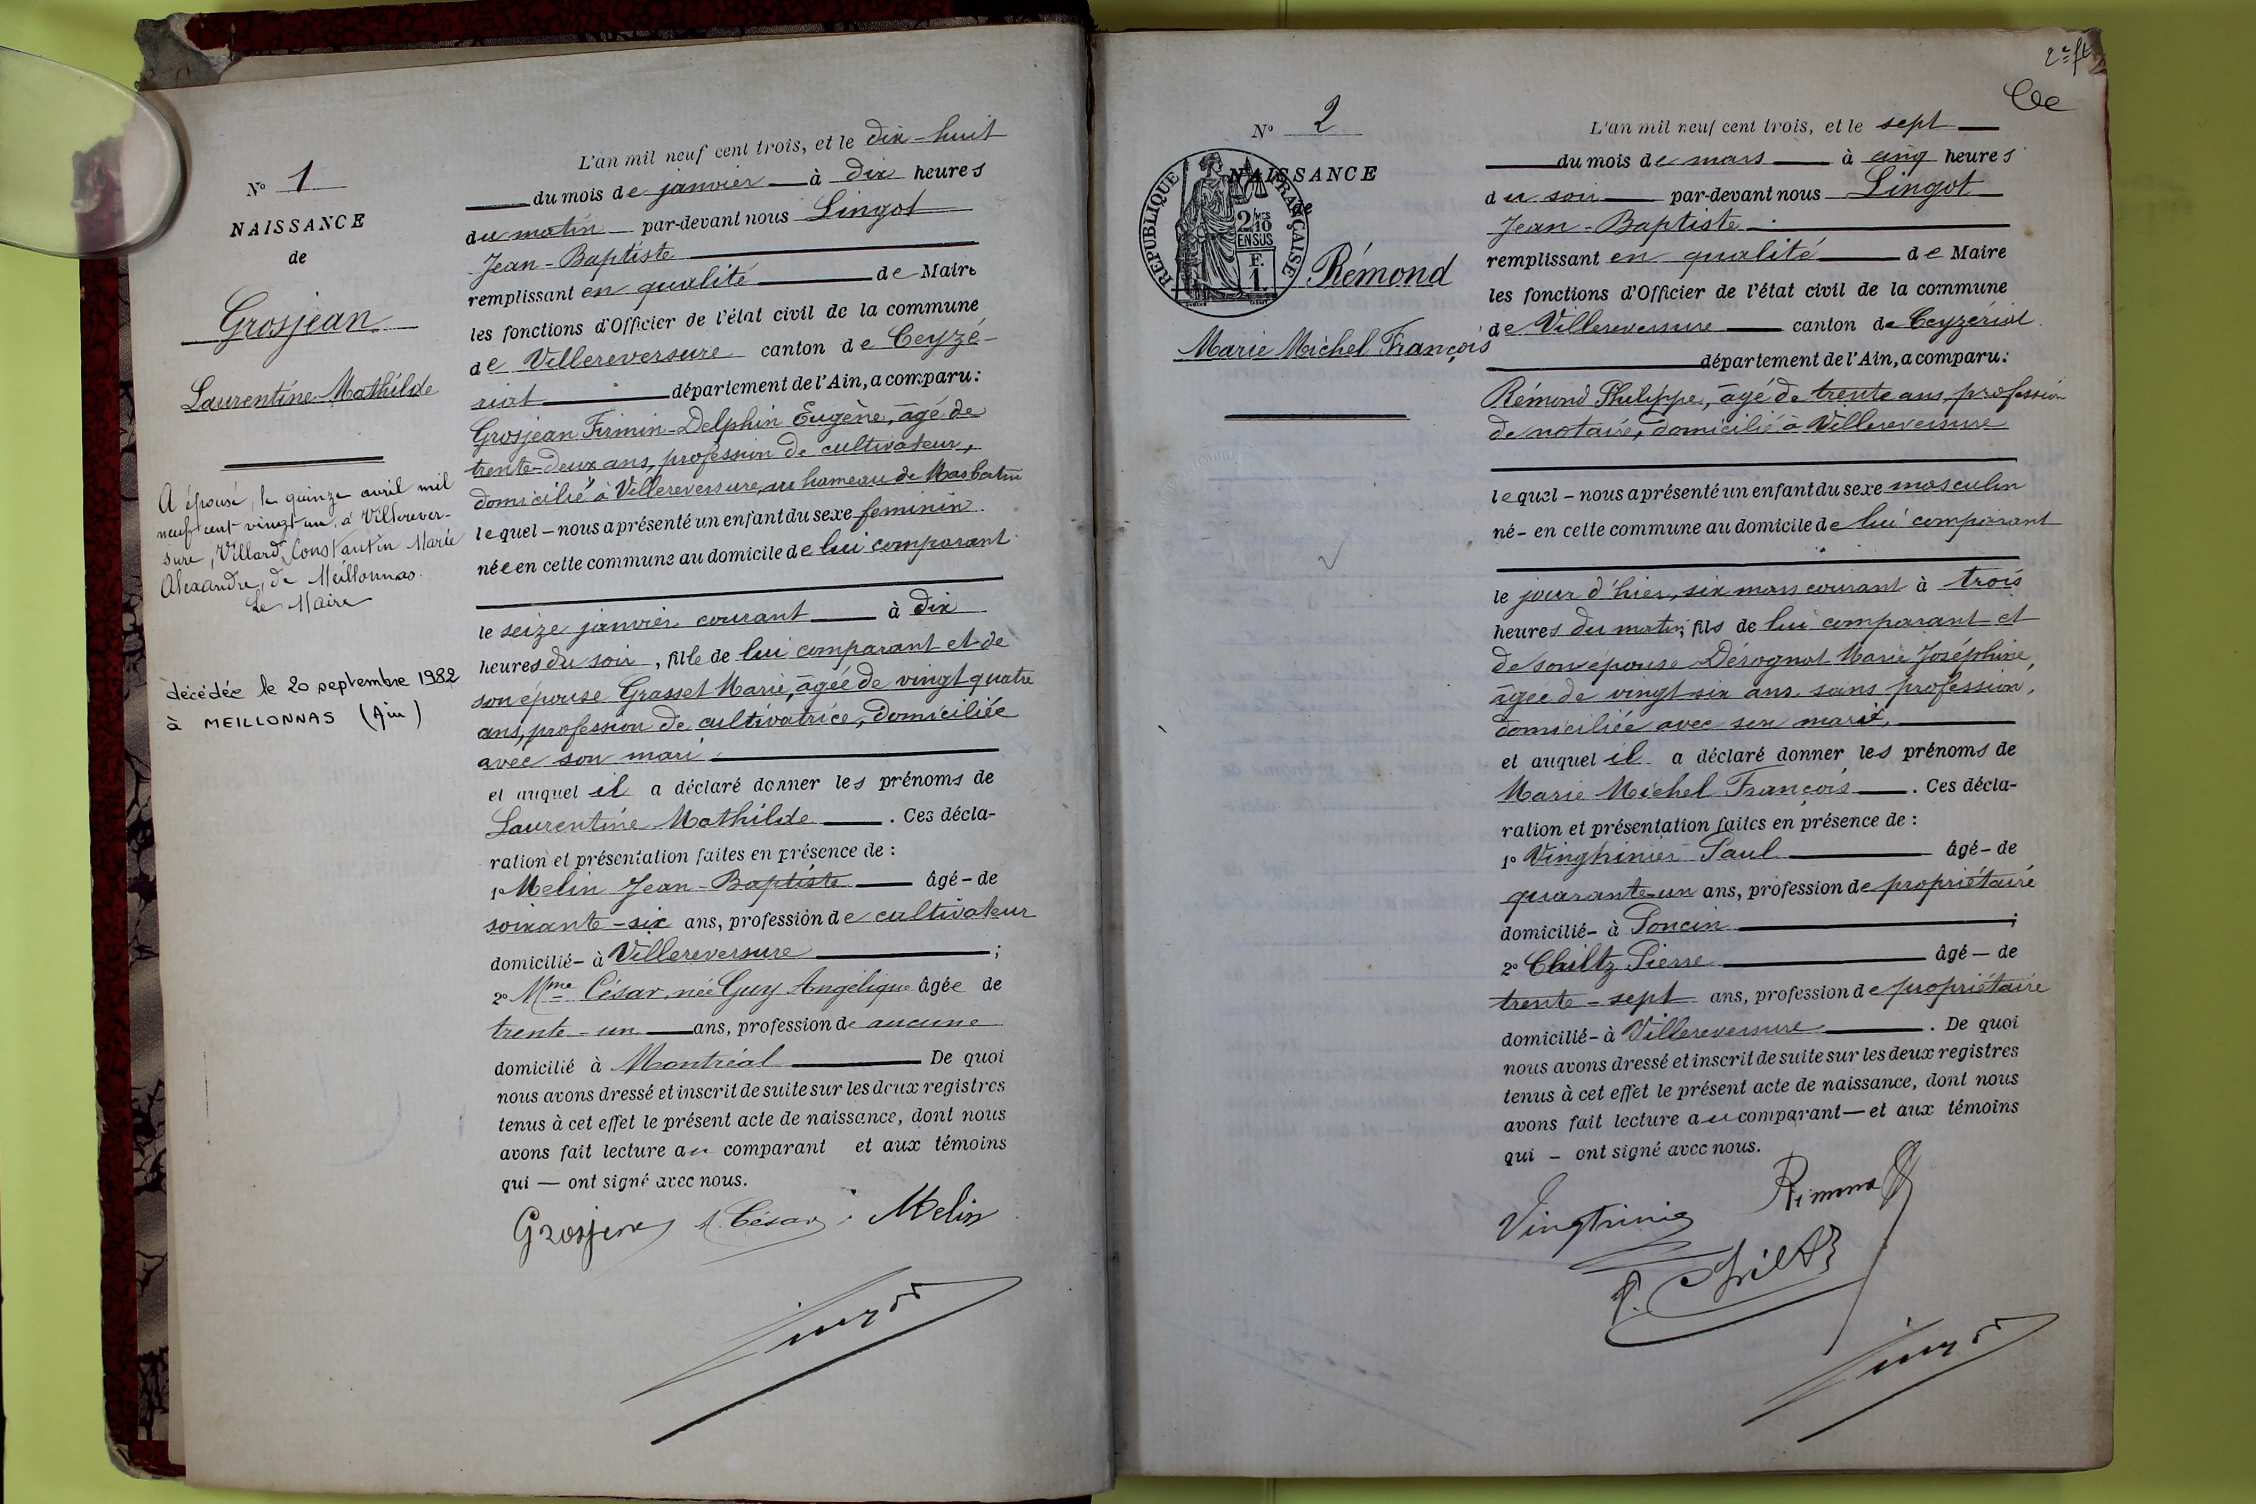 N° 1
NAISSANCE
de
Grosjean
Laurentine Mathilde
A épousé, le quinze avril mil
neuf cent vingt un, à Villerever-
sure, Villard Constantin Marie
Alexandre, de Meillonnas.
Le Maire
décédée le 20 septembre 1982
à MEILLONNAS (Ain)
L'an mil neuf cent trois, et le dix-huit
du mois de janvier à dix heures
du matin par-devant nous Lingot
Jean-Baptiste
remplissant en qualité de Maire
les fonctions d'Officier de l'état civil de la commune
de Villereversure canton de Ceyzé-
riat département de l'Ain, a comparu:
Grosjean Firmin-Delphin Eugène, âgé de
trente-deux ans, profession de cultivateur,
domicilié à Villereversure, au hameau de Masbatin
lequel - nous a présenté un enfant du sexe feminin
née en cette commune au domicile de lui comparant
le seize janvier courant à dix
heures du soir, fille de lui comparant et de
son épouse Grasset Marie, âgée de vingt quatre
ans, profession de cultivatrice, domiciliée
avec son mari
et auquel il a déclaré donner les prénoms de
Laurentine Mathilde. Ces décla-
ration et présentation faites en présence de :
1° Melin Jean-Baptiste âgé - de
soixante-six ans, profession de cultivateur
domicilié - à Villereversure ;
2° Mme César, née Guy Angélique âgée de
trente-un ans, profession de aucune
domicilié à Montréal De quoi
nous avons dressé et inscrit de suite sur les deux registres
tenus à cet effet le présent acte de naissance, dont nous
avons fait lecture au comparant et aux témoins
qui — ont signé avec nous.
Grosjean A. César Melin
Lingot
2e ft
N° 2
NAISSANCE
de
REPUBLIQUE FRANÇAISE
2/10 EN SUS
F. 1.
Rémond
Marie Michel François
L'an mil neuf cent trois, et le sept
du mois de mars à cinq heures
du soir par-devant nous Lingot
Jean-Baptiste
remplissant en qualité de Maire
les fonctions d'Officier de l'état civil de la commune
de Villereversure canton de Ceyzériat
département de l'Ain, a comparu:
Rémond Philippe, âgé de trente ans, profession
de notaire, domicilié à Villereversure
lequel - nous a présenté un enfant du sexe masculin
né - en cette commune au domicile de lui comparant
le jour d'hier, six mars courant à trois
heures du matin, fils de lui comparant et
de son épouse Désognat Marie Joséphine,
âgée de vingt-six ans sans profession,
domiciliée avec son mari,
et auquel il a déclaré donner les prénoms de
Marie Michel François. Ces décla-
ration et présentation faites en présence de :
1° Vingtrinier Paul âgé - de
quarante-un ans, profession de propriétaire
domicilié - à Poncin ;
2° Chiltz Pierre âgé — de
trente-sept ans, profession de propriétaire
domicilié - à Villereversure. De quoi
nous avons dressé et inscrit de suite sur les deux registres
tenus à cet effet le présent acte de naissance, dont nous
avons fait lecture au comparant — et aux témoins
qui - ont signé avec nous.
Vingtrinier Rémond
P. Chiltz
Lingot